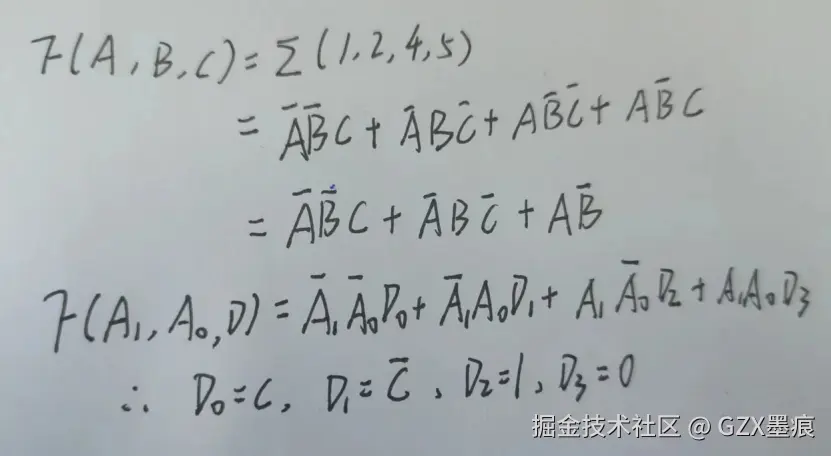 F(A,B,C)=Σ(1,2,4,5)
= A̅B̅C+A̅BC̅+AB̅C̅+AB̅C
= A̅B̅C+A̅BC̅+AB̅
F(A₁,A₀,D)=A̅₁A̅₀D₀+A̅₁A₀D₁+A₁A̅₀D₂+A₁A₀D₃
∴ D₀=C, D₁=C̅, D₂=1, D₃=0
掘金技术社区 @ GZX墨痕